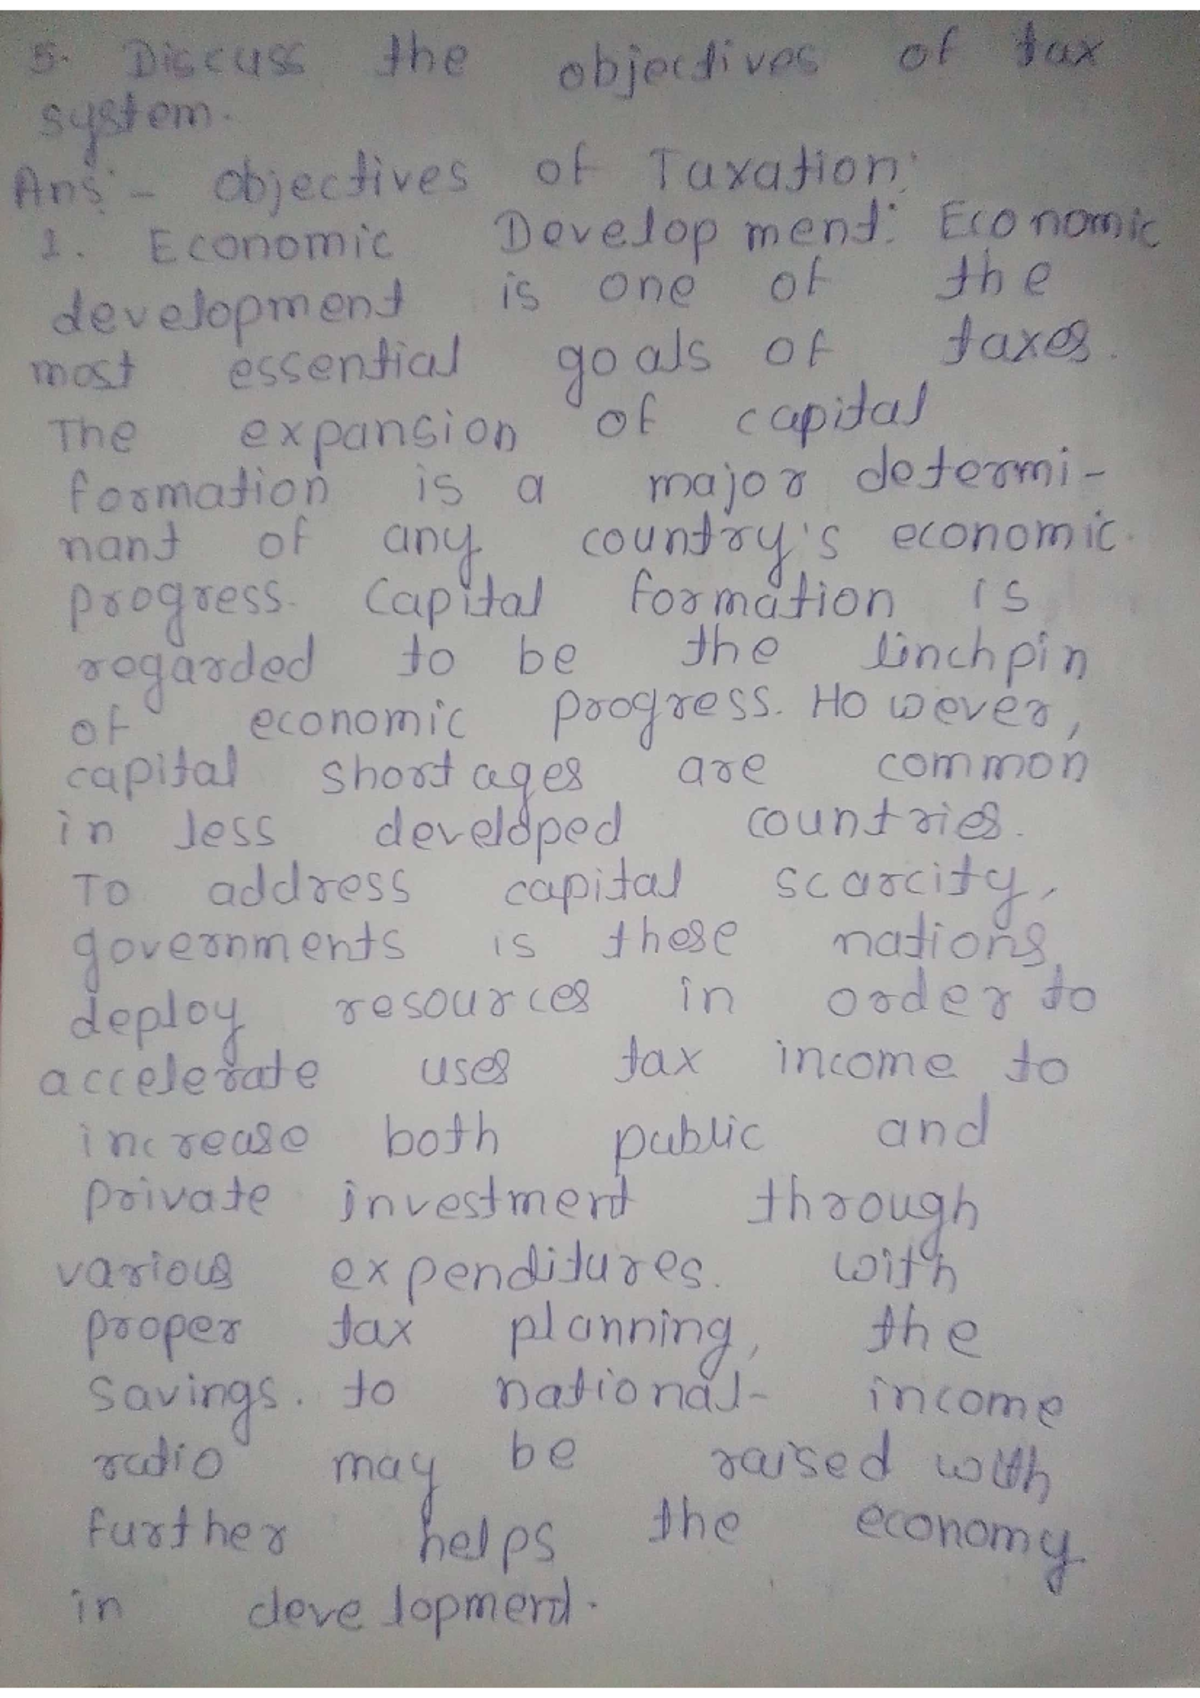 5. Discuss the objectives of tax
system.
Ans:- Objectives of Taxation:
1. Economic Development: Economic
development is one of the
most essential goals of taxes.
The expansion of capital
formation is a major determi-
nant of any country's economic
progress. Capital formation is
regarded to be the linchpin
of economic progress. However,
capital shortages are common
in less developed countries.
To address capital scarcity,
governments is these nations
deploy resources in order to
accelerate uses tax income to
increase both public and
private investment through
various expenditures. with
proper tax planning, the
savings. to national- income
ratio may be raised with
further helps the economy
in development.